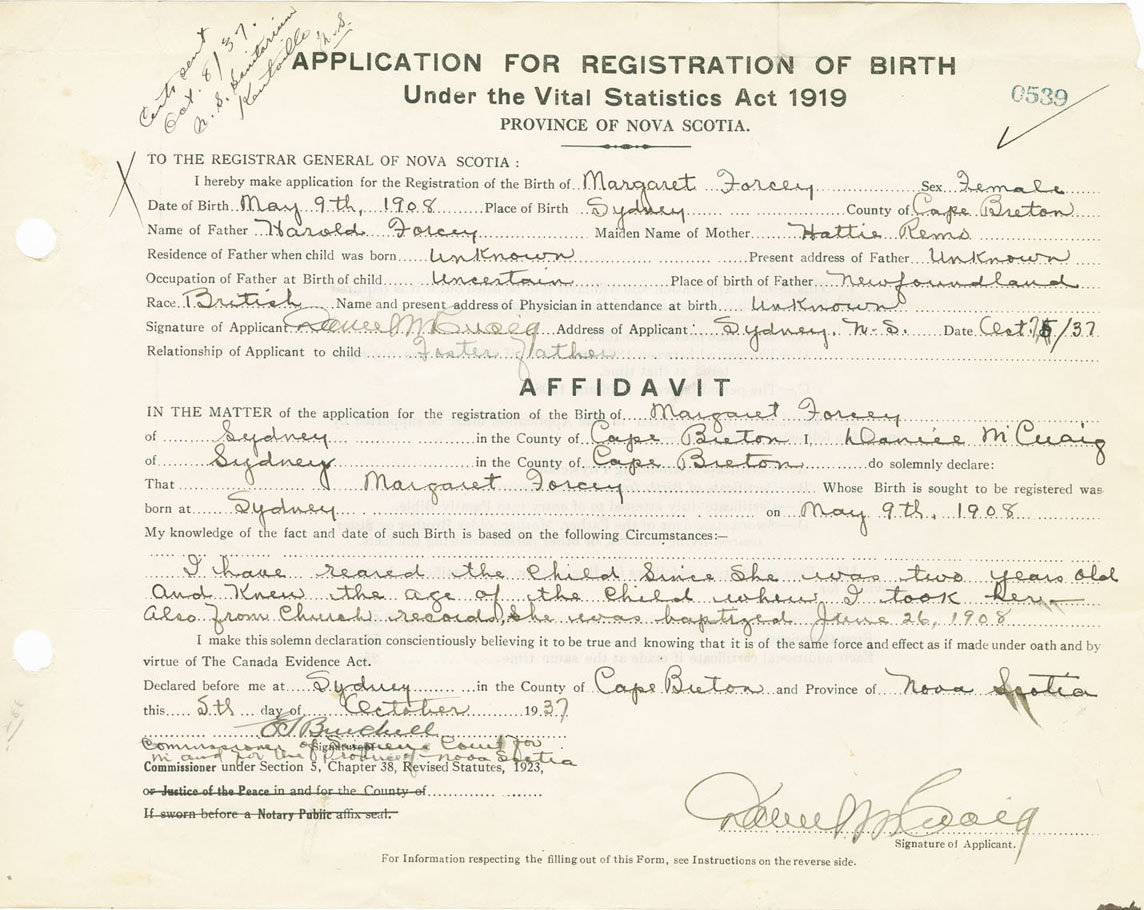 Certs sent
Oct. 8/37.
N. S. Sanitarium
Kentville N.S.
APPLICATION FOR REGISTRATION OF BIRTH
Under the Vital Statistics Act 1919
0539
PROVINCE OF NOVA SCOTIA.
TO THE REGISTRAR GENERAL OF NOVA SCOTIA :
I hereby make application for the Registration of the Birth of Margaret Forcey Sex Female
Date of Birth May 9th, 1908 Place of Birth Sydney County of Cape Breton
Name of Father Harold Forcey Maiden Name of Mother Hattie Rems
Residence of Father when child was born Unknown Present address of Father Unknown
Occupation of Father at Birth of child Uncertain Place of birth of Father Newfoundland
Race British Name and present address of Physician in attendance at birth Unknown
Signature of Applicant Daniel McCuaig Address of Applicant : Sydney, N.S. Date Oct. 5/37
Relationship of Applicant to child Foster Father
AFFIDAVIT
IN THE MATTER of the application for the registration of the Birth of Margaret Forcey
of Sydney in the County of Cape Breton I, Daniel McCuaig
of Sydney in the County of Cape Breton do solemnly declare:
That Margaret Forcey Whose Birth is sought to be registered was
born at Sydney on May 9th, 1908
My knowledge of the fact and date of such Birth is based on the following Circumstances:—
I have reared the child since she was two years old
and knew the age of the child when I took her.
Also from Church records, she was baptized June 26, 1908
I make this solemn declaration conscientiously believing it to be true and knowing that it is of the same force and effect as if made under oath and by
virtue of The Canada Evidence Act.
Declared before me at Sydney in the County of Cape Breton and Province of Nova Scotia
this 5th day of October 1937
Commissioner of Supreme Court for
in and for the Province of Nova Scotia
Commissioner under Section 5, Chapter 38, Revised Statutes, 1923,
or Justice of the Peace in and for the County of
If sworn before a Notary Public affix seal.
Daniel McCuaig
Signature of Applicant.
For Information respecting the filling out of this Form, see Instructions on the reverse side.